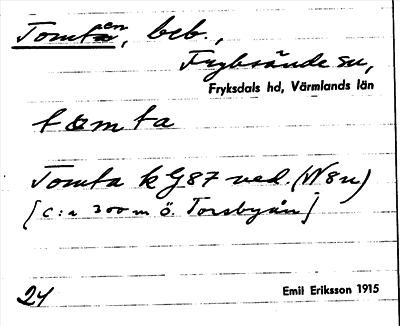 Tomtaen, beb.,
Fryksände sn,
Fryksdals hd, Värmlands län
tomta
Tomta k G87 ved. (W8u)
[c:a 300 m ö. Torsbyån]
24
Emil Eriksson 1915